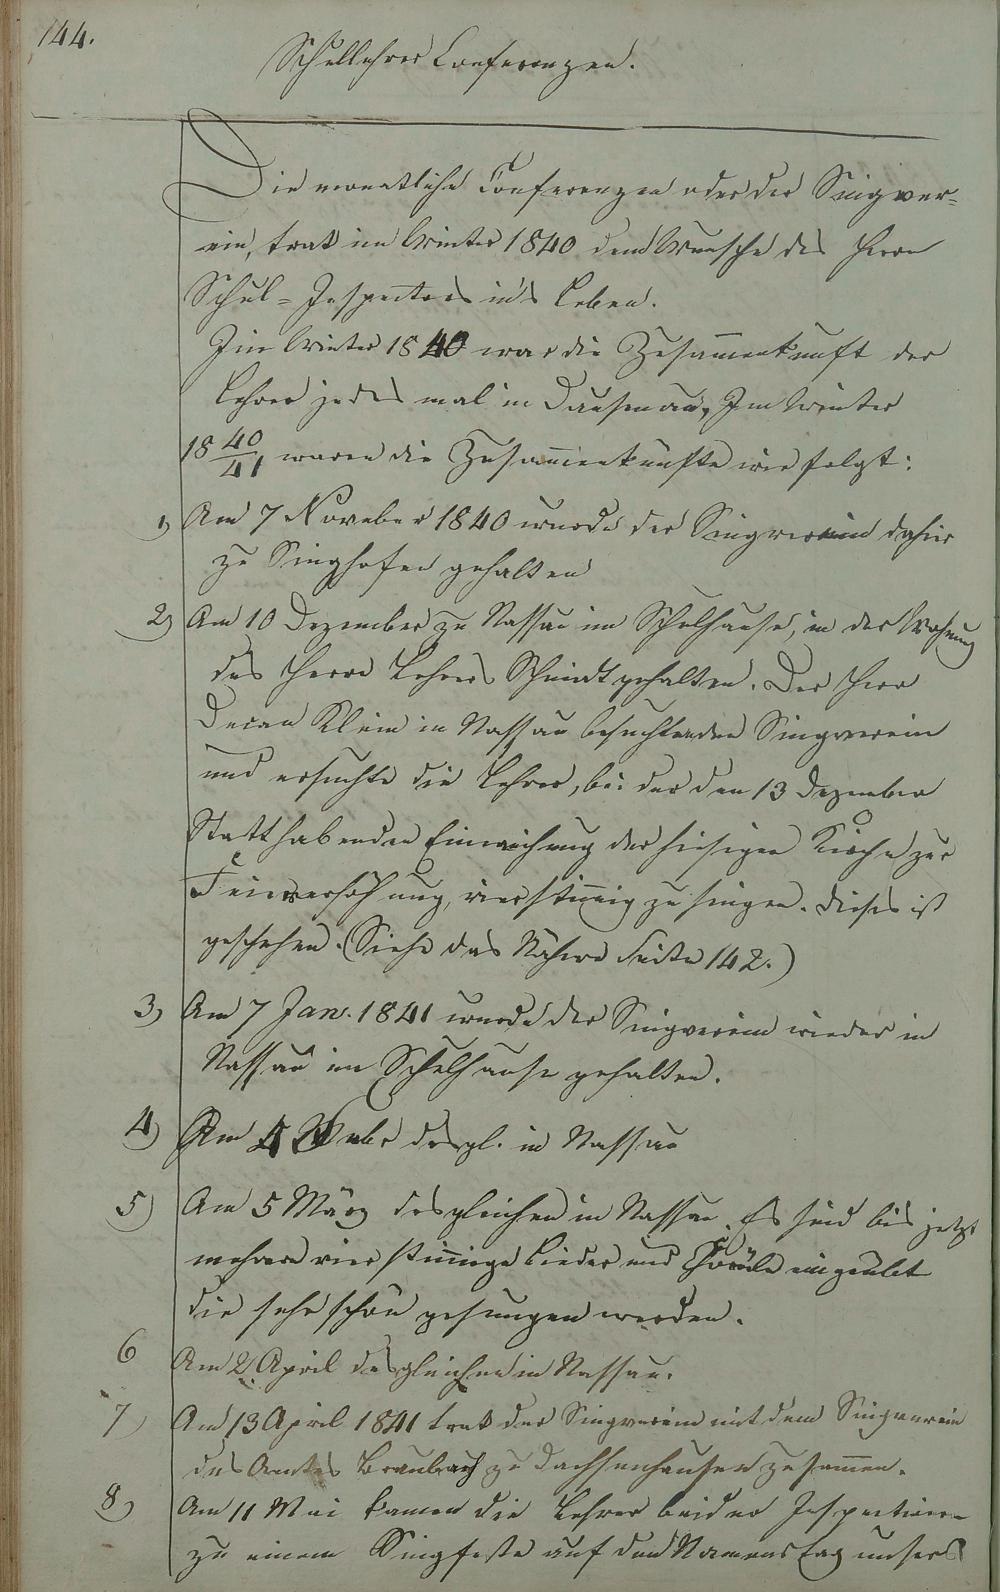 144.
Schullehrer Conferenzen.
Die monatliche Conferenzen oder der Singver-
ein, trat im Winter 1840 dem Wunsche des Herrn
Schul-Inspectors in's Leben.
Im Winter 1840 war die Zusam̄enkunft der
Lehrer jedes mal in Dausenau, Im Winter
18 40/41 waren die Zusam̄enkünfte wie folgt:
1) Am 7 November 1840 wurde der Singverein dahier
zu Singhofen gehalten
2) Am 10 Dezember zu Nassau im Schulhause, in der Wohnung
des Herrn Lehrers Schmidt gehalten. Der Herr
Decan Klein in Nassau besuchte den Singverein
und ersuchte die Lehrer, bei der den 13 Dezember
Statt habenden Einweihung der hiesigen Kirche zur
Feiererhöhung, vierstim̄ig zu singen. Dieses ist
geschehen. (Siehe das Nähere Seite 142.)
3) Am 7 Jan. 1841 wurde der Singverein wieder in
Nassau im Schulhause gehalten.
4) Am 4 desgl. in Nassau
5) Am 5 März desgleichen in Nassau. Es sind bis jetzt
mehrere vierstim̄ige Lieder und Choräle eingeübt
die sehr schön gesungen werden.
6 Am 2 April desgleichen in Nassau.
7) Am 13 April 1841 trat der Singverein mit dem Singverein
des Amtes Braubach zu Dachsenhausen zusam̄en.
8) Am 11 Mai kamen die Lehrer beider Inspectionen
zu einem Singfeste auf den Namenstag unsers